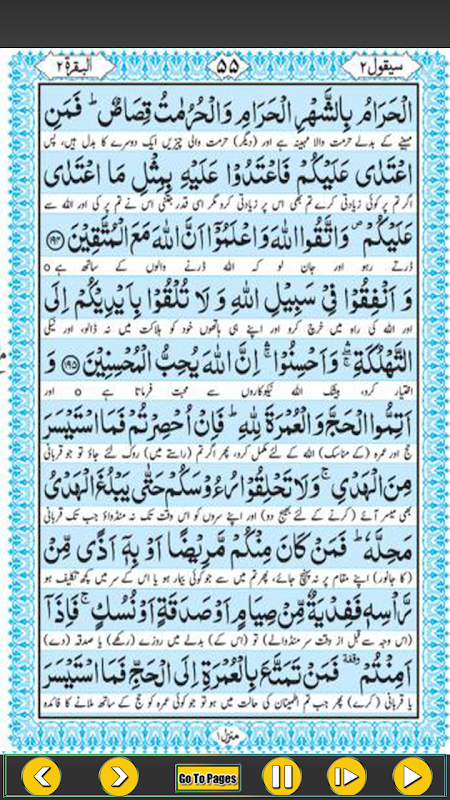 سیقول ۲ ۵۵ البقرة ۲
الْحَرَامُ بِالشَّهْرِ الْحَرَامِ وَالْحُرُمٰتُ قِصَاصٌ ؕ فَمَنِ
مہینے کے بدلے حرمت والا مہینہ ہے اور (دیگر) حرمت والی چیزیں ایک دوسرے کا بدل ہیں، پس
اعْتَدٰى عَلَيْكُمْ فَاعْتَدُوْا عَلَيْهِ بِمِثْلِ مَا اعْتَدٰى
اگر تم پر کوئی زیادتی کرے تم بھی اس پر زیادتی کرو مگر اسی قدر جتنی اس نے تم پر کی اور اللہ سے
عَلَيْكُمْ ۪ وَاتَّقُوا اللّٰهَ وَاعْلَمُوْۤا اَنَّ اللّٰهَ مَعَ الْمُتَّقِيْنَ ﴿۱۹۴﴾
ڈرتے رہو اور جان لو کہ اللہ ڈرنے والوں کے ساتھ ہے o
وَ اَنْفِقُوْا فِيْ سَبِيْلِ اللّٰهِ وَ لَا تُلْقُوْا بِاَيْدِيْكُمْ اِلَى
اور اللہ کی راہ میں خرچ کرو اور اپنے ہی ہاتھوں خود کو ہلاکت میں نہ ڈالو، اور نیکی
التَّهْلُكَةِ ۛۚ وَاَحْسِنُوْا ۛۚ اِنَّ اللّٰهَ يُحِبُّ الْمُحْسِنِيْنَ ﴿۱۹۵﴾ وَ
اختیار کرو، بیشک اللہ نیکوکاروں سے محبت فرماتا ہے o اور
اَتِمُّوا الْحَجَّ وَ الْعُمْرَةَ لِلّٰهِ ؕ فَاِنْ اُحْصِرْتُمْ فَمَا اسْتَيْسَرَ
حج اور عمرہ (کے مناسک) اللہ کے لئے مکمل کرو، پھر اگر تم (راستے میں) روک لئے جاؤ تو جو قربانی
مِنَ الْهَدْيِ ۚ وَلَا تَحْلِقُوْا رُءُوْسَكُمْ حَتّٰى يَبْلُغَ الْهَدْيُ
بھی میسر آئے (کرنے کے لئے بھیج دو) اور اپنے سروں کو اس وقت تک نہ منڈواؤ جب تک قربانی
مَحِلَّهٗ ؕ فَمَنْ كَانَ مِنْكُمْ مَّرِيْضًا اَوْ بِهٖۤ اَذًى مِّنْ
(کا جانور) اپنے مقام پر نہ پہنچ جائے، پھر تم میں سے جو کوئی بیمار ہو یا اس کے سر میں کچھ تکلیف ہو
رَّاْسِهٖ فَفِدْيَةٌ مِّنْ صِيَامٍ اَوْ صَدَقَةٍ اَوْ نُسُكٍ ۚ فَاِذَاۤ
(اس وجہ سے قبل از وقت سر منڈوالے) تو (اس کے) بدلے میں روزے (رکھے) یا صدقہ (دے)
اَمِنْتُمْ ۥ وقفة فَمَنْ تَمَتَّعَ بِالْعُمْرَةِ اِلَى الْحَجِّ فَمَا اسْتَيْسَرَ
یا قربانی (کرے) پھر جب تم اطمینان کی حالت میں ہو تو جو کوئی عمرہ کو حج کے ساتھ ملانے کا فائدہ
منزل ۱
Go To Pages